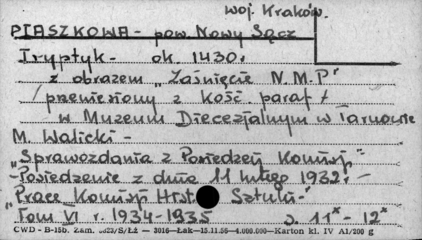 woj. Kraków.
PTASZKOWA - pow. Nowy Sącz
Tryptyk - ok. 1430.
z obrazem „Zaśnięcie N.M.P."
/przeniesiony z Kość. paraf./
w Muzeum Diecezjalnym w Tarnowie
M. Walicki -
„Sprawozdania z Posiedzeń Komisji"
- Posiedzenie z dnia 11 lutego 1932. -
„Prace Komisji Hist. Sztuki -"
Tom VI r. 1934-1935 s. 11* - 12*
CWD - B-15b. Zam. S/Łż — 3016—Łak—15.11.56—4.000.000—Karton kl. IV A1/200 g